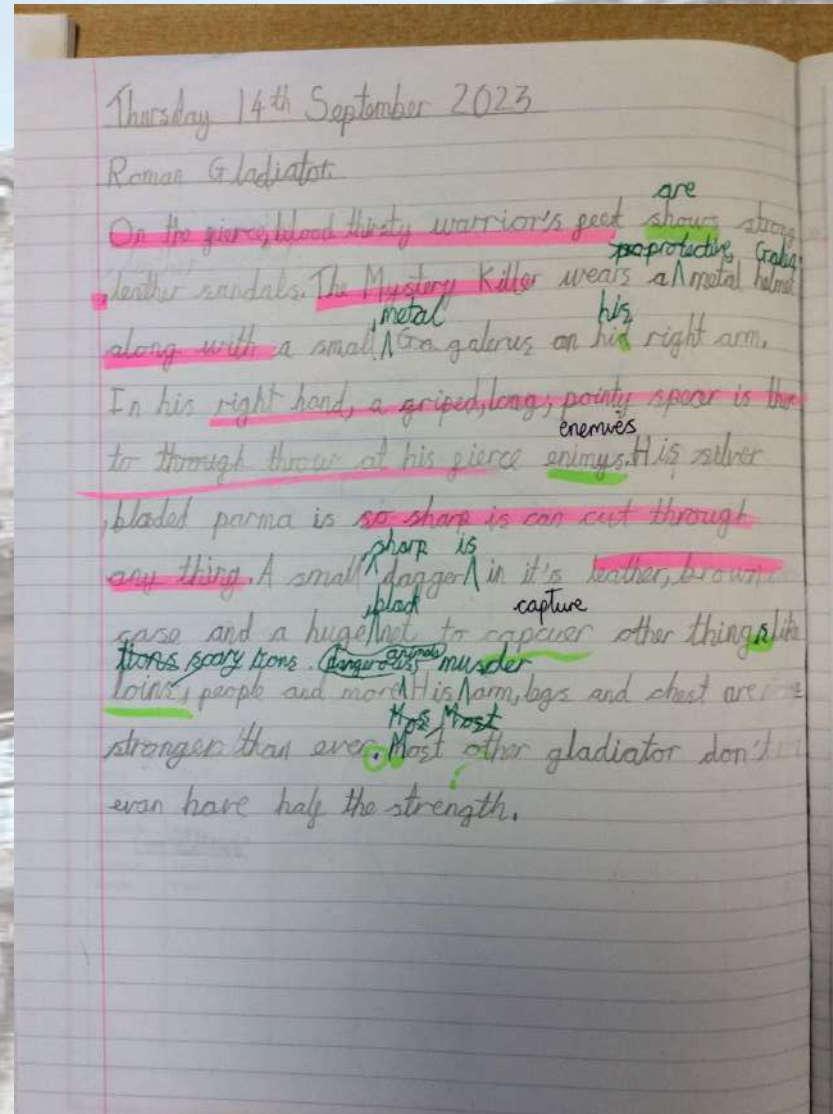 Thursday 14th September 2023
Roman Gladiator.
are
On the fierce, blood thirsty warrior's feet shows strong
protective, Galea
leather sandals. The Mystery Killer wears a ^ metal helmet
, metal his
along with a small ^ Ga galerus on his right arm.
In his right hand, a griped, long, pointy spear is there
enemies
to through throw at his fierce enimys. His silver
, bladed parma is so sharp is can cut through
, sharp is
any thing. A small ^ dagger ^ in it's leather, brown
, black capture
case and a huge ^ net to capcuer other things like
lions scary lions. dangerous animals muscler
loins, people and more ^ His ^ arm, legs and chest are
Hos Most
stronger than ever. Most other gladiator don't
evan have half the strength.